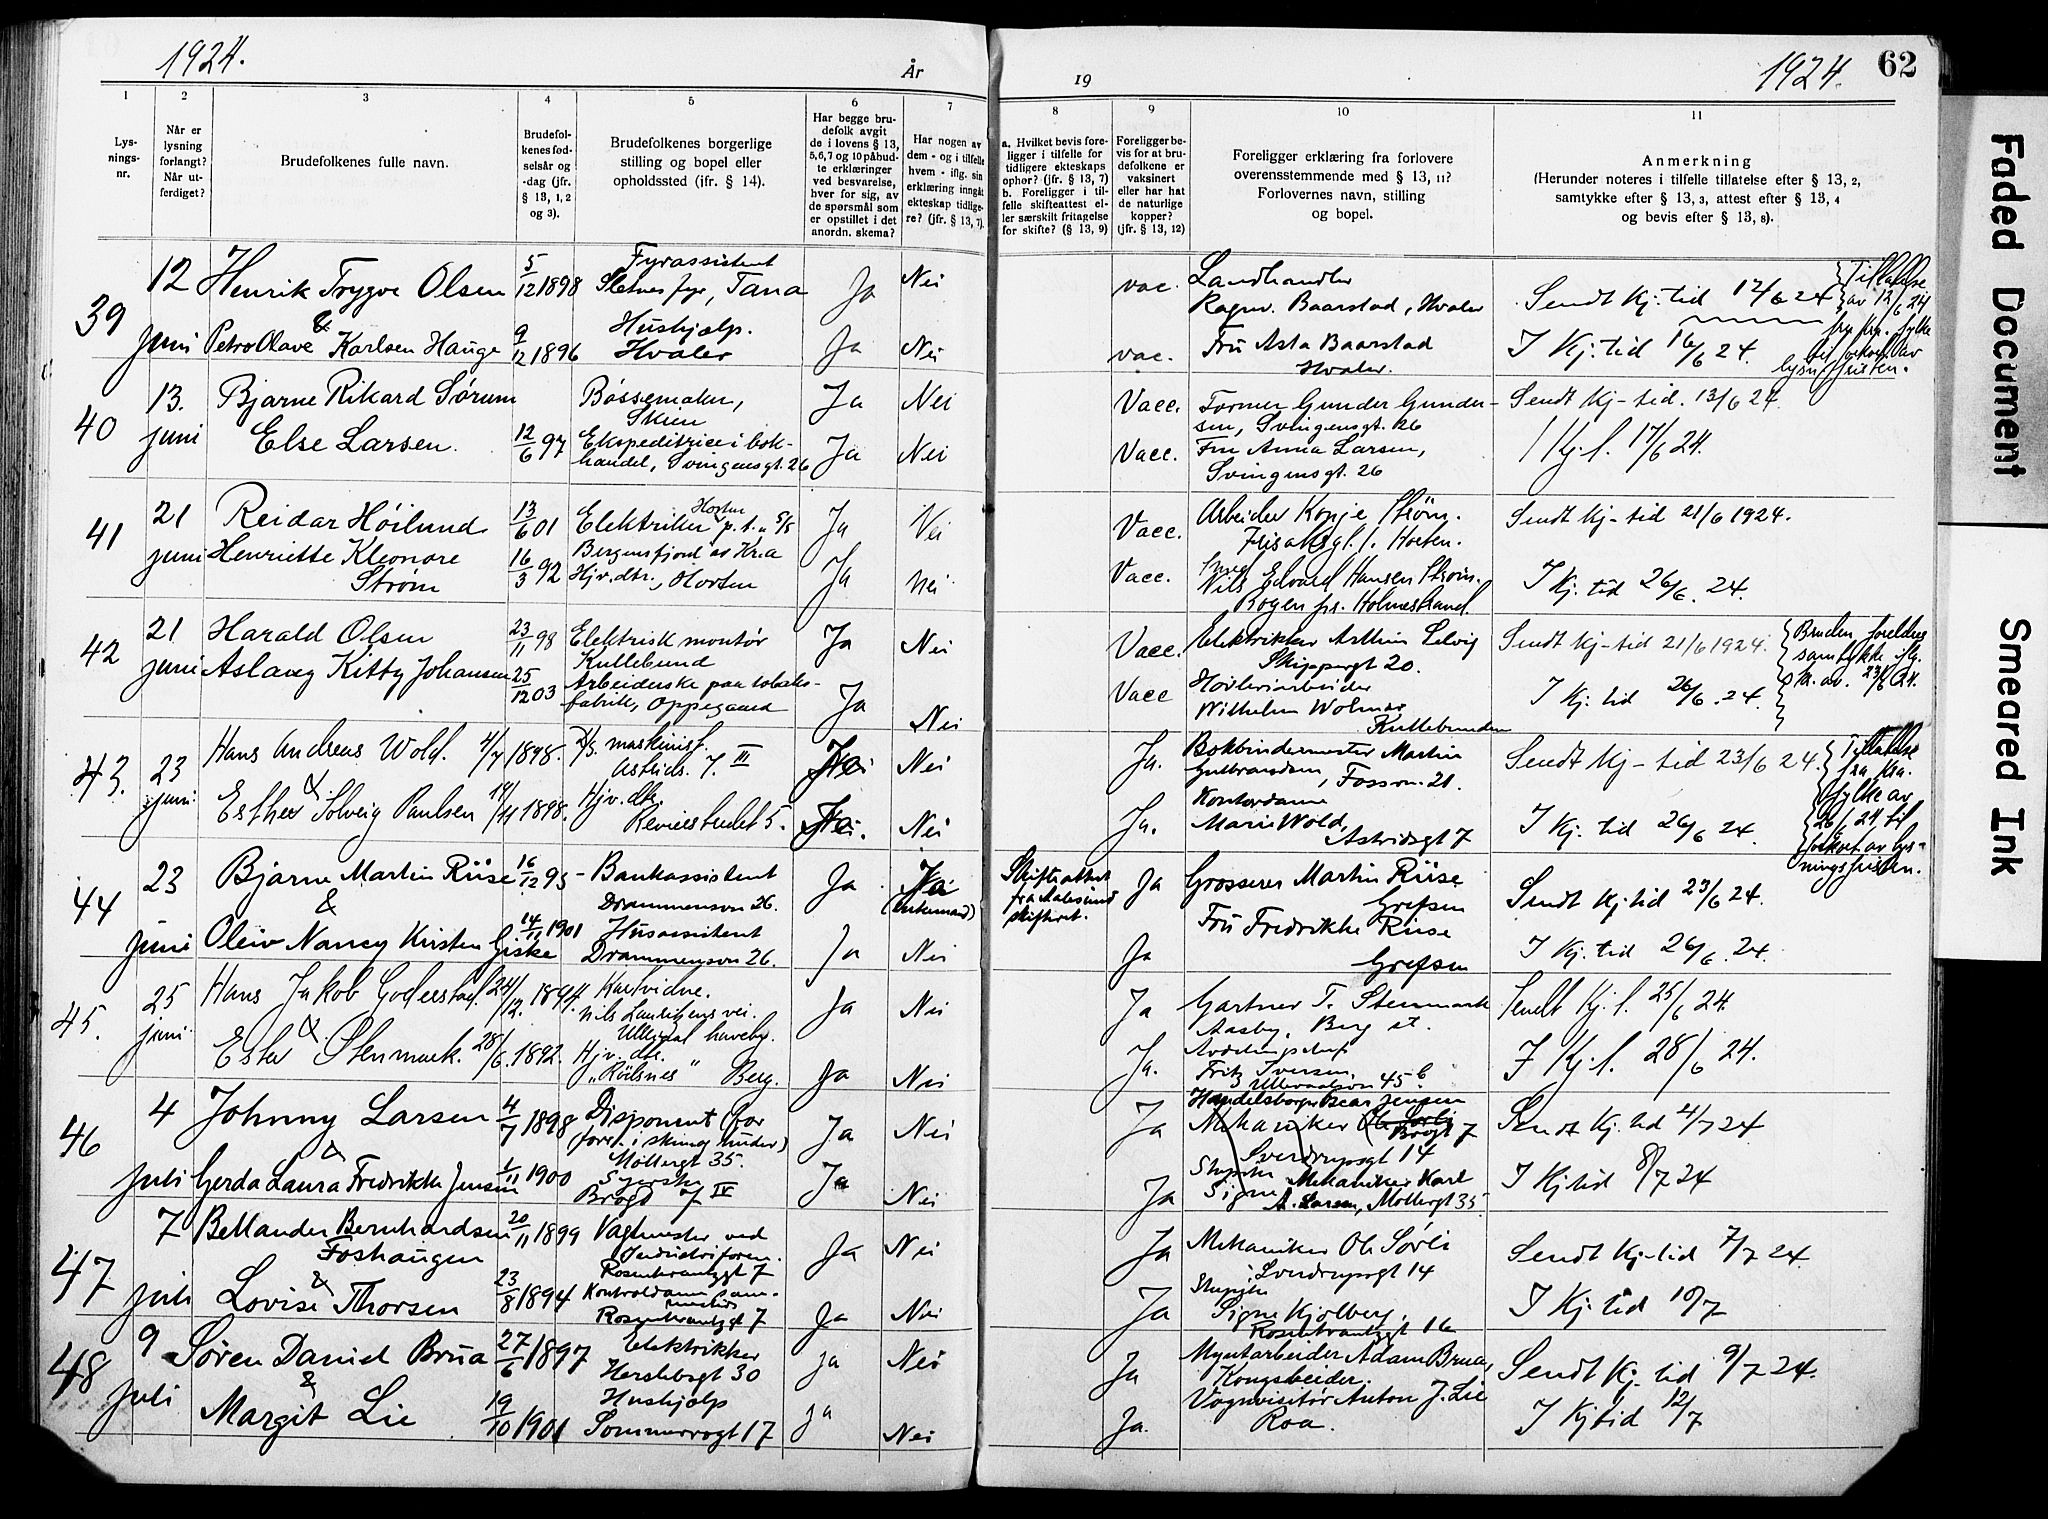 1924.
År
19
1924.
62
1
2
3
4
5
6
7
8
9
10
11
Lys-
nings-
nr.
Når er
lysning
forlangt?
Når ut-
ferdiget?
Brudefolkenes fulle navn.
Brudefol-
kenes fød-
selsår og
-dag (jfr.
§ 13, 1, 2
og 3).
Brudefolkenes borgerlige
stilling og bopel eller
opholdssted (jfr. § 14).
Har begge bru-
defolk avgit
de i lovens § 13,
5,6,7 og 10 påbud-
te erklæringer
ved besvarelse,
hver for sig, av
de spørsmål som
er opstillet i det
anordn. skema?
Har nogen av
dem - og i tilfelle
hvem - iflg. sin
erklæring inngåt
ekteskap tidlige-
re? (jfr. § 13, 7).
a. Hvilket bevis fore-
ligger i tilfelle for
tidligere ekteskaps
ophør? (jfr. § 13, 7)
b. Foreligger i til-
felle skifteattest el-
ler særskilt fritagelse
for skifte? (§ 13, 9)
Foreligger be-
vis for at bru-
defolkene er
vaksinert
eller har hat
de naturlige
kopper?
(jfr. § 13, 12)
Foreligger erklæring fra forlovere
overensstemmende med § 13, 11?
Forlovernes navn, stilling
og bopel.
Anmerkning
(Herunder noteres i tilfelle tillatelse efter § 13, 2,
samtykke efter § 13, 3, attest efter § 13, 4
og bevis efter § 13, 8).
39
12
juni
Henrik Trygve Olsen
&
Petro Olave Karlsen Hauge
5/12 1898
9/12 1896
Fyrassistent
Sletnes fyr, Tana
Hushjælp.
Hvaler
Ja
Ja
Nei
Nei
vac.
vac.
Landhandler
Ragnv. Baarstad, Hvaler
Fru Asta Baarstad
Hvaler.
Sendt Kj. tid 12/6 24
I Kj. tid 16/6 24.
Tillatelse
av 12/6 24
fra Kra. fylke
40
13.
juni
Bjarne Rikard Sørum
Else Larsen.
12/6 97
Bøssemaker,
Skien
Ekspeditrice i bok-
handel, Svingensgt. 26
Ja
Ja
Nei
Nei
Vacc.
Vacc.
Former Gunder Gunder-
sen, Svingensgt. 26
Fru Anna Larsen,
Svingensgt. 26
Sendt Kj-tid. 13/6 24.
I Kj. t. 17/6 24.
41
21
juni
Reidar Høilund
Henriette Kleonore
Strøm
13/6 01
16/3 92
Horten
Elektriker p. t. S/S
Bergensfjord av Kr.a
Hjv. dtr., Horten
Ja
Ja
Nei
Nei
Vacc.
Vacc.
Arbeider Konje Strøm.
Horten.
Nils Edvard Hansen Strøm.
Bogen pr. Holmestrand.
Sendt Kj-tid 21/6 1924.
I Kj. tid 26/6. 24.
42
21
juni
Harald Olsen
Aslaug Kitty Johansen
23/11 98
25/12 03
Elektrisk montør
Kullebund
Arbeiderske paa tobaks-
fabrik, Oppegaard
Ja
Ja
Nei
Nei
Vacc.
Vacc
Elektriker Arthur Selvig
Skippergt 20.
Høvleriarbeider
Wilhelm Wolmar
Kullebunden
Sendt Kj-tid 21/6 1924.
I Kj. tid 26/6. 24.
Bruden foreldres
samtykke iflg.
av. 23/6 24.
43.
23
juni.
Hans Andreas Wold.
&
Esther Solveig Paulsen
4/7 1898.
19/11 1898.
2/3. maskinist.
Astrids. 7. III
Hjv. dtr.
Revierstredet 5.
Nei
Nei
Ja.
Ja.
Bokbindermester Martin
Gulbrandsen, Fossvn. 21.
Kontordame
Marie Wold,
Astridsgt 7
Sendt Kj-tid 23/6 24.
I Kj. tid 26/6 24.
Tillatelse
fra Kra.
fylke av
26/6 24 til
forkort. av lys-
ningsfristen.
44
23
juni
Bjarne Martin Riise
&
Oleiv Nancy Kirsten Giske
16/12 95
14/11 1901
Bankassistent
Drammensvn 26.
Husassistent
Drammensvn 26.
Ja
Ja
Ja
(enkemand)
Nei
Skifteattest
fra Aalesund
skifteret.
Ja
Ja
Grosserer Martin Riise
Grefsen
Fru Fredrikke Riise
Grefsen
Sendt Kj. tid 23/6 24.
I Kj. tid 26/6. 24.
45.
25
juni.
Hans Jakob Goderstad.
&
Ester Stenmark.
24/12. 1894.
28/6. 1892.
Nils Lauritzens vei.
Ullevål haveby.
Hjv. dtr.
" Berg.
Ja
Ja
Nei
Nei
Ja
Ja.
Gartner T. Stenmark
Aasby, Berg st.
Avdelingschef
Fritz Iversen,
Ullevaalsvn 45 b.
Sendt Kj. t. 25/6 24.
I Kj. t. 28/6 24.
46
4
juli
Johnny Larsen
&
Gerda Laura Fredrikke Jensen
4/7 1898
1/11 1900
Disponent (for
forr. i skind huder)
Møllergt 35.
Syerske
Brogt 7 IV
Ja
Ja
Nei
Nei
Ja
Ja
Handelsborger Oscar Jensen
Mekaniker Ole Sørli
Brogt 7
Sverdrupsgt 14
Signe
Mekaniker Karl
A. Larsen, Møllergt 35
Sendt Kj. tid 4/7 24
I Kj tid 8/7 24
47
7
juli
Bellander Bernhardsen
Foshaugen
&
Lovise Thorsen
20/11 1899
23/8 1894
Vagtmester ved
Industriforen.
Rosenkrantzgt 7
Kontroldame
Rosenkrantzgt 7
Ja
Ja
Nei
Nei
Ja
Ja
Mekaniker Ole Sørli
Sverdrupsgt 14
Signe Kjølberg,
Rosenkrantzgt 16
Sendt Kj-tid 7/7 24.
I Kj. tid 10/7
48
9
juli
Søren Daniel Brua
&
Margit Lie
27/6 1897
19/10 1901
Elektrikker
Herslebsgt 30
Hushjælp
Sommerrogt 17
ja
ja
Nei
Nei
Ja
Ja.
Myntarbeider Adam Brua,
Kongsberg.
Vognvisitør Anton J. Lie
Roa.
Sendt Kj. tid 9/7 24.
I Kj tid 12/7
Faded Document
Smeared Ink